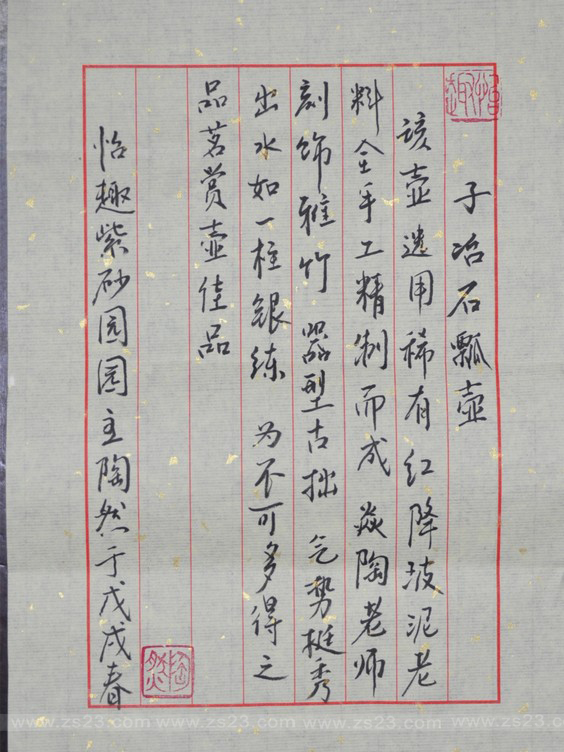 怡趣
子冶石瓢壶
该壶选用稀有红降坡泥老
料全手工精制而成 焱陶老师
刻饰雅竹 器型古拙 气势挺秀
出水如一柱银练 为不可多得之
品茗赏壶佳品
怡趣紫砂园园主陶然于戊戌春
陶然
www.zs23.com www.zs23.com www.zs23.com www.zs23.com